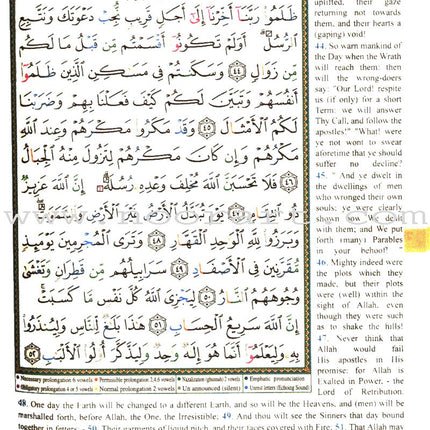 ظَلَمُوا۟ رَبَّنَآ أَخِّرْنَآ إِلَىٰٓ أَجَلٍ قَرِيبٍ نُّجِبْ دَعْوَتَكَ وَنَتَّبِعِ
ٱلرُّسُلَ ۗ أَوَلَمْ تَكُونُوٓا۟ أَقْسَمْتُم مِّن قَبْلُ مَا لَكُم
مِّن زَوَالٍ ٤٤ وَسَكَنتُمْ فِى مَسَٰكِنِ ٱلَّذِينَ ظَلَمُوٓا۟
أَنفُسَهُمْ وَتَبَيَّنَ لَكُمْ كَيْفَ فَعَلْنَا بِهِمْ وَضَرَبْنَا
لَكُمُ ٱلْأَمْثَالَ ٤٥ وَقَدْ مَكَرُوا۟ مَكْرَهُمْ وَعِندَ ٱللَّهِ
مَكْرُهُمْ وَإِن كَانَ مَكْرُهُمْ لِتَزُولَ مِنْهُ ٱلْجِبَالُ
٤٦ فَلَا تَحْسَبَنَّ ٱللَّهَ مُخْلِفَ وَعْدِهِۦ رُسُلَهُۥٓ ۗ إِنَّ ٱللَّهَ عَزِيزٌ
ذُو ٱنتِقَامٍ ٤٧ يَوْمَ تُبَدَّلُ ٱلْأَرْضُ غَيْرَ ٱلْأَرْضِ وَٱلسَّمَٰوَٰتُ ۖ
وَبَرَزُوا۟ لِلَّهِ ٱلْوَٰحِدِ ٱلْقَهَّارِ ٤٨ وَتَرَى ٱلْمُجْرِمِينَ يَوْمَئِذٍ
مُّقَرَّنِينَ فِى ٱلْأَصْفَادِ ٤٩ سَرَابِيلُهُم مِّن قَطِرَانٍ وَتَغْشَىٰ
وُجُوهَهُمُ ٱلنَّارُ ٥٠ لِيَجْزِىَ ٱللَّهُ كُلَّ نَفْسٍ مَّا كَسَبَتْ ۚ
إِنَّ ٱللَّهَ سَرِيعُ ٱلْحِسَابِ ٥١ هَٰذَا بَلَٰغٌ لِّلنَّاسِ وَلِيُنذَرُوا۟
بِهِۦ وَلِيَعْلَمُوٓا۟ أَنَّمَا هُوَ إِلَٰهٌ وَٰحِدٌ وَلِيَذَّكَّرَ أُو۟لُوا۟ ٱلْأَلْبَٰبِ ٥٢
uplifted, their gaze
returning not towards
them, and their hearts a
(gaping) void!
44. So warn mankind of
the Day when the Wrath
will reach them: then
will the wrong-doers
say: "Our Lord! respite
us (if only) for a short
Term: we will answer
Thy Call, and follow the
apostles!" "What! were
ye not wont to swear
aforetime that ye should
suffer no decline?
45. " And ye dwelt in
the dwellings of men
who wronged their own
souls: ye were clearly
shown how We dealt
with them; and We put
forth (many) Parables
in your behoof! "
46. Mighty indeed were
the plots which they
made, but their plots
were (well) within the
sight of Allah, even
though they were such
as to shake the hills!
47. Never think that
Allah would fail
His apostles in His
promise: for Allah is
Exalted in Power, - the
Lord of Retribution.
Necessary prolongation 6 vowels Permissible prolongation 2,4,6 vowels Nazalization (ghunnah) 2 vowels Emphatic pronunciation
Obligatory prolongation 4 or 5 vowels Normal prolongation 2 vowels Un announced (silent) Unrest letters (Echoing Sound)
48. One day the Earth will be changed to a different Earth, and so will be the Heavens, and (men) will be
marshalled forth, before Allah, the One, the Irresistible; 49. And thou wilt see the Sinners that day bound
together in fetters; - 50. Their garments of liquid pitch, and their faces covered with Fire; 51. That Allah may